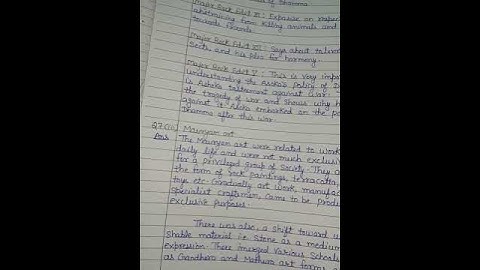 of Dhamma
Major Rock Edict IX : Expansive on
abstraining from killing animals and
towards friends.
Major Rock Edict XII : Says about tolera
Sects, and his plea for harmony.
Major Rock Edict V : This is very impo
understanding the Asoka's policy of D
is Ashoka testament against war.
the tragedy of war and shows why h
against it. Asoka embarked on the pa
Dhamma after this war.
Q7 Mauryan art
Ans The Mauryan art were related to work
daily life and were not much exclusiv
for a privileged group of Society. They a
the form of rock paintings, terracotta,
toys etc. Gradually, art work, manufac
specialist craftsmen, came to be produ
exclusive purposes.
There was also, a shift toward u
Shable material i.e. Stone as a medium
expression. There merged various Schools
as Gandhara and Mathura art forms a